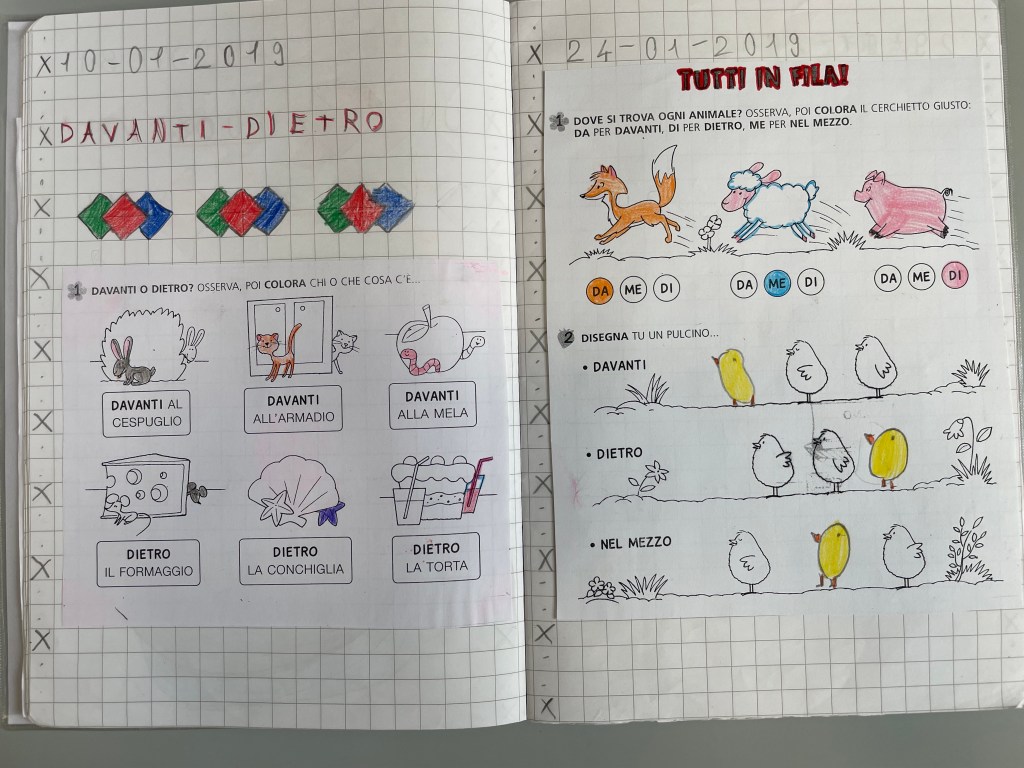 X 10-01-2019
X DAVANTI-DIETRO
X
X
1 DAVANTI O DIETRO? OSSERVA, POI COLORA CHI O CHE COSA C'È...
X
DAVANTI AL
CESPUGLIO
DAVANTI
ALL'ARMADIO
DAVANTI
ALLA MELA
X
X
X
DIETRO
IL FORMAGGIO
DIETRO
LA CONCHIGLIA
DIETRO
LA TORTA
X
X
X 24-01-2019
TUTTI IN FILA!
X
1 DOVE SI TROVA OGNI ANIMALE? OSSERVA, POI COLORA IL CERCHIETTO GIUSTO:
DA PER DAVANTI, DI PER DIETRO, ME PER NEL MEZZO.
X
X
DA ME DI
DA ME DI
DA ME DI
X
2 DISEGNA TU UN PULCINO...
X
• DAVANTI
X
• DIETRO
X
X
• NEL MEZZO
X
X
X